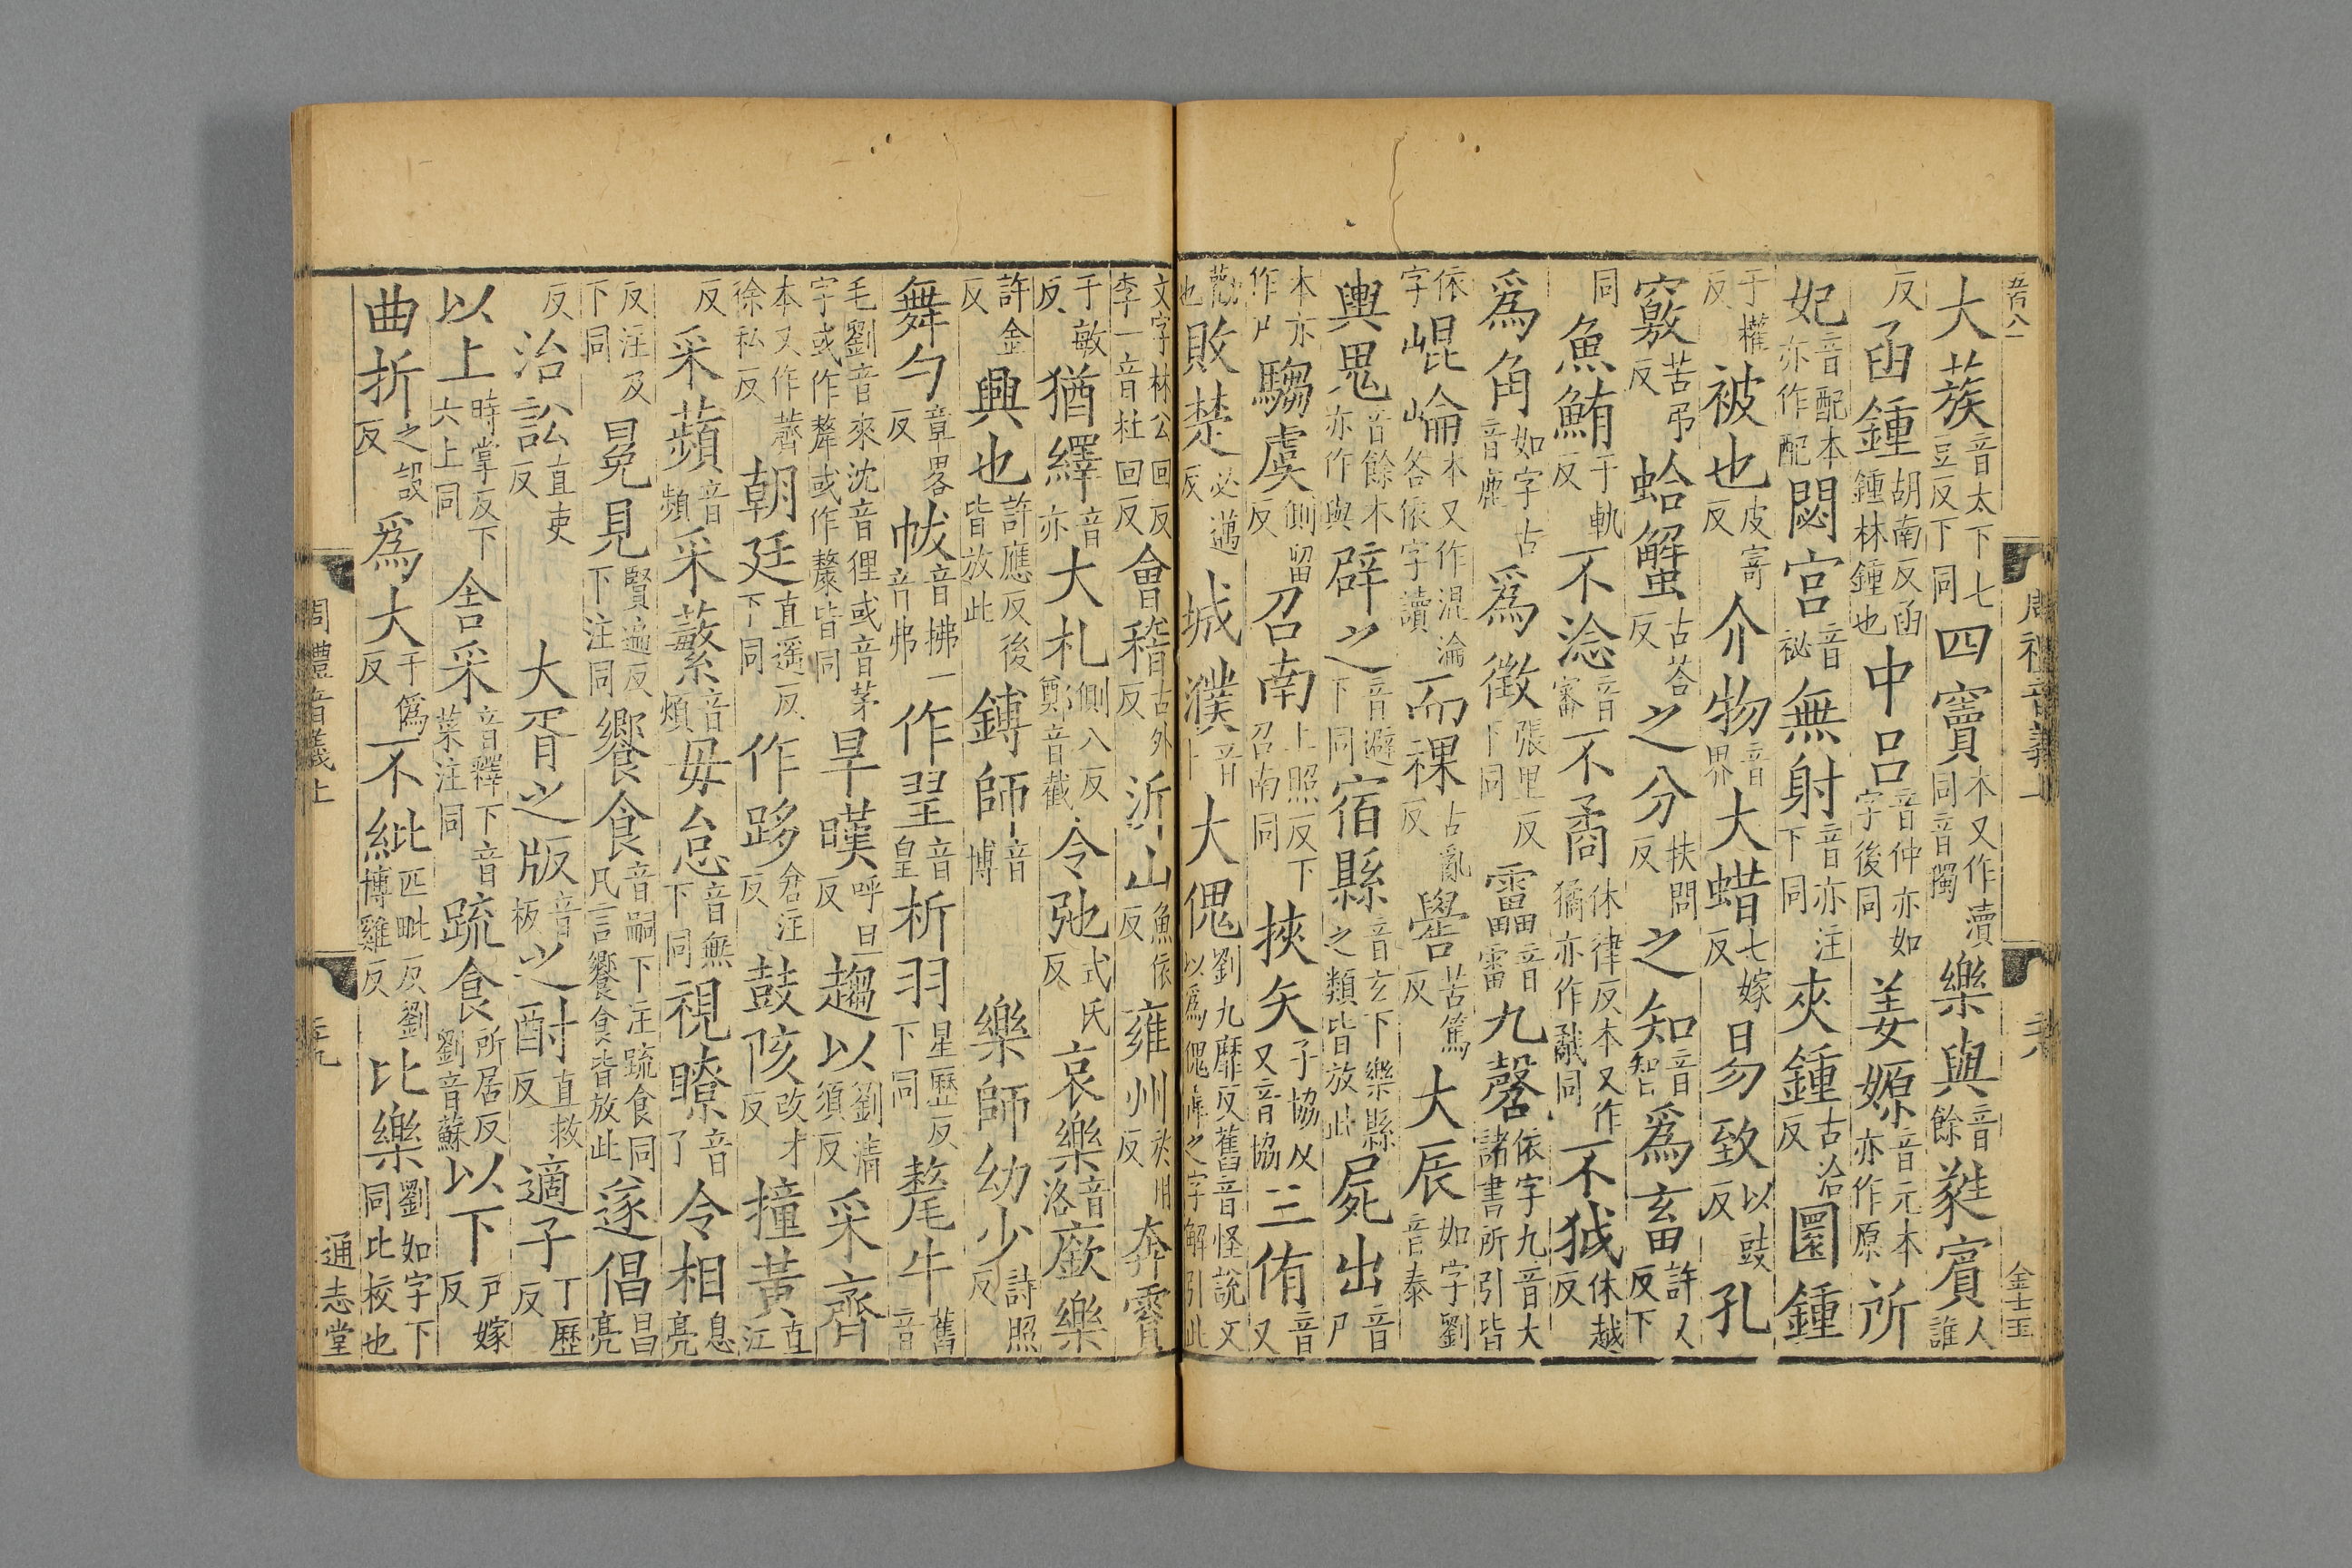 大蔟音太下七豆反下同四竇本又作瀆同音獨樂與音餘蕤賔人誰
反函鍾胡南反函鍾林鍾也中呂音仲亦如字後同姜嫄音元本亦作原所
妃音配本亦作配閟宮音祕無射音亦注下同夾鍾古洽反圜鍾
于權反被也皮寄反介物音界大蜡七嫁反易致以豉反孔
竅苦弔反蛤蟹古荅反之分扶問反之知音智爲畜許又反下
同魚鮪于軌反不淰音審不矞休律反本又作獝亦作㦎同不狘休越反
爲角如字古音鹿爲徵張里反下同靁音雷九磬依字九音大諸書所引皆
依字崐崘本又作混淪各依字讀而祼古亂反嚳苦篤反大辰如字劉音泰
輿鬼音餘本亦作與辟之音避下同宿縣音玄下樂縣之類皆放此屍出音尸
本亦作尸騶虞側留反召南上照反下召南同挾矢子協反又音協三侑音又
勸也敗楚必邁反城濮音卜大傀劉九靡反舊音怪說文以爲傀偉之字解引此
文字林公回反李一音杜回反會稽古外反沂山魚依反雍州於用反奔霣
于敏反猶繹音亦大札側八反鄭音截令弛式氏反哀樂音洛廞樂
許金反興也許應反後皆放此鎛師音博樂師幼少詩照反
舞勺章畧反帗音拂一音弗作䍿音皇析羽星歷反下同氂牛舊音
毛劉音來沈音俚或音茅字或作犛或作斄皆同旱暵呼旦反趨以劉清須反采齊
本又作薺徐私反朝廷直遥反下同作跢倉注反鼓陔改才反撞黃直江
反采蘋音頻采蘩音煩毋怠音無下同視瞭音了令相息亮
反注及下同冕見賢遍反下注同饗食音嗣下注䟽食同凡言饗食皆放此遂倡昌亮
反治訟直吏反大胥之版音板之酎直救反適子丁歷反
以上時掌反下六上同舍采音釋下音菜注同䟽食所居反劉音蘇以下戸嫁反
曲折之設反爲大于僞反不紕匹毗反劉博雞反比樂劉如字下同比校也
周禮音義上
金士玉
周禮音義上
通志堂